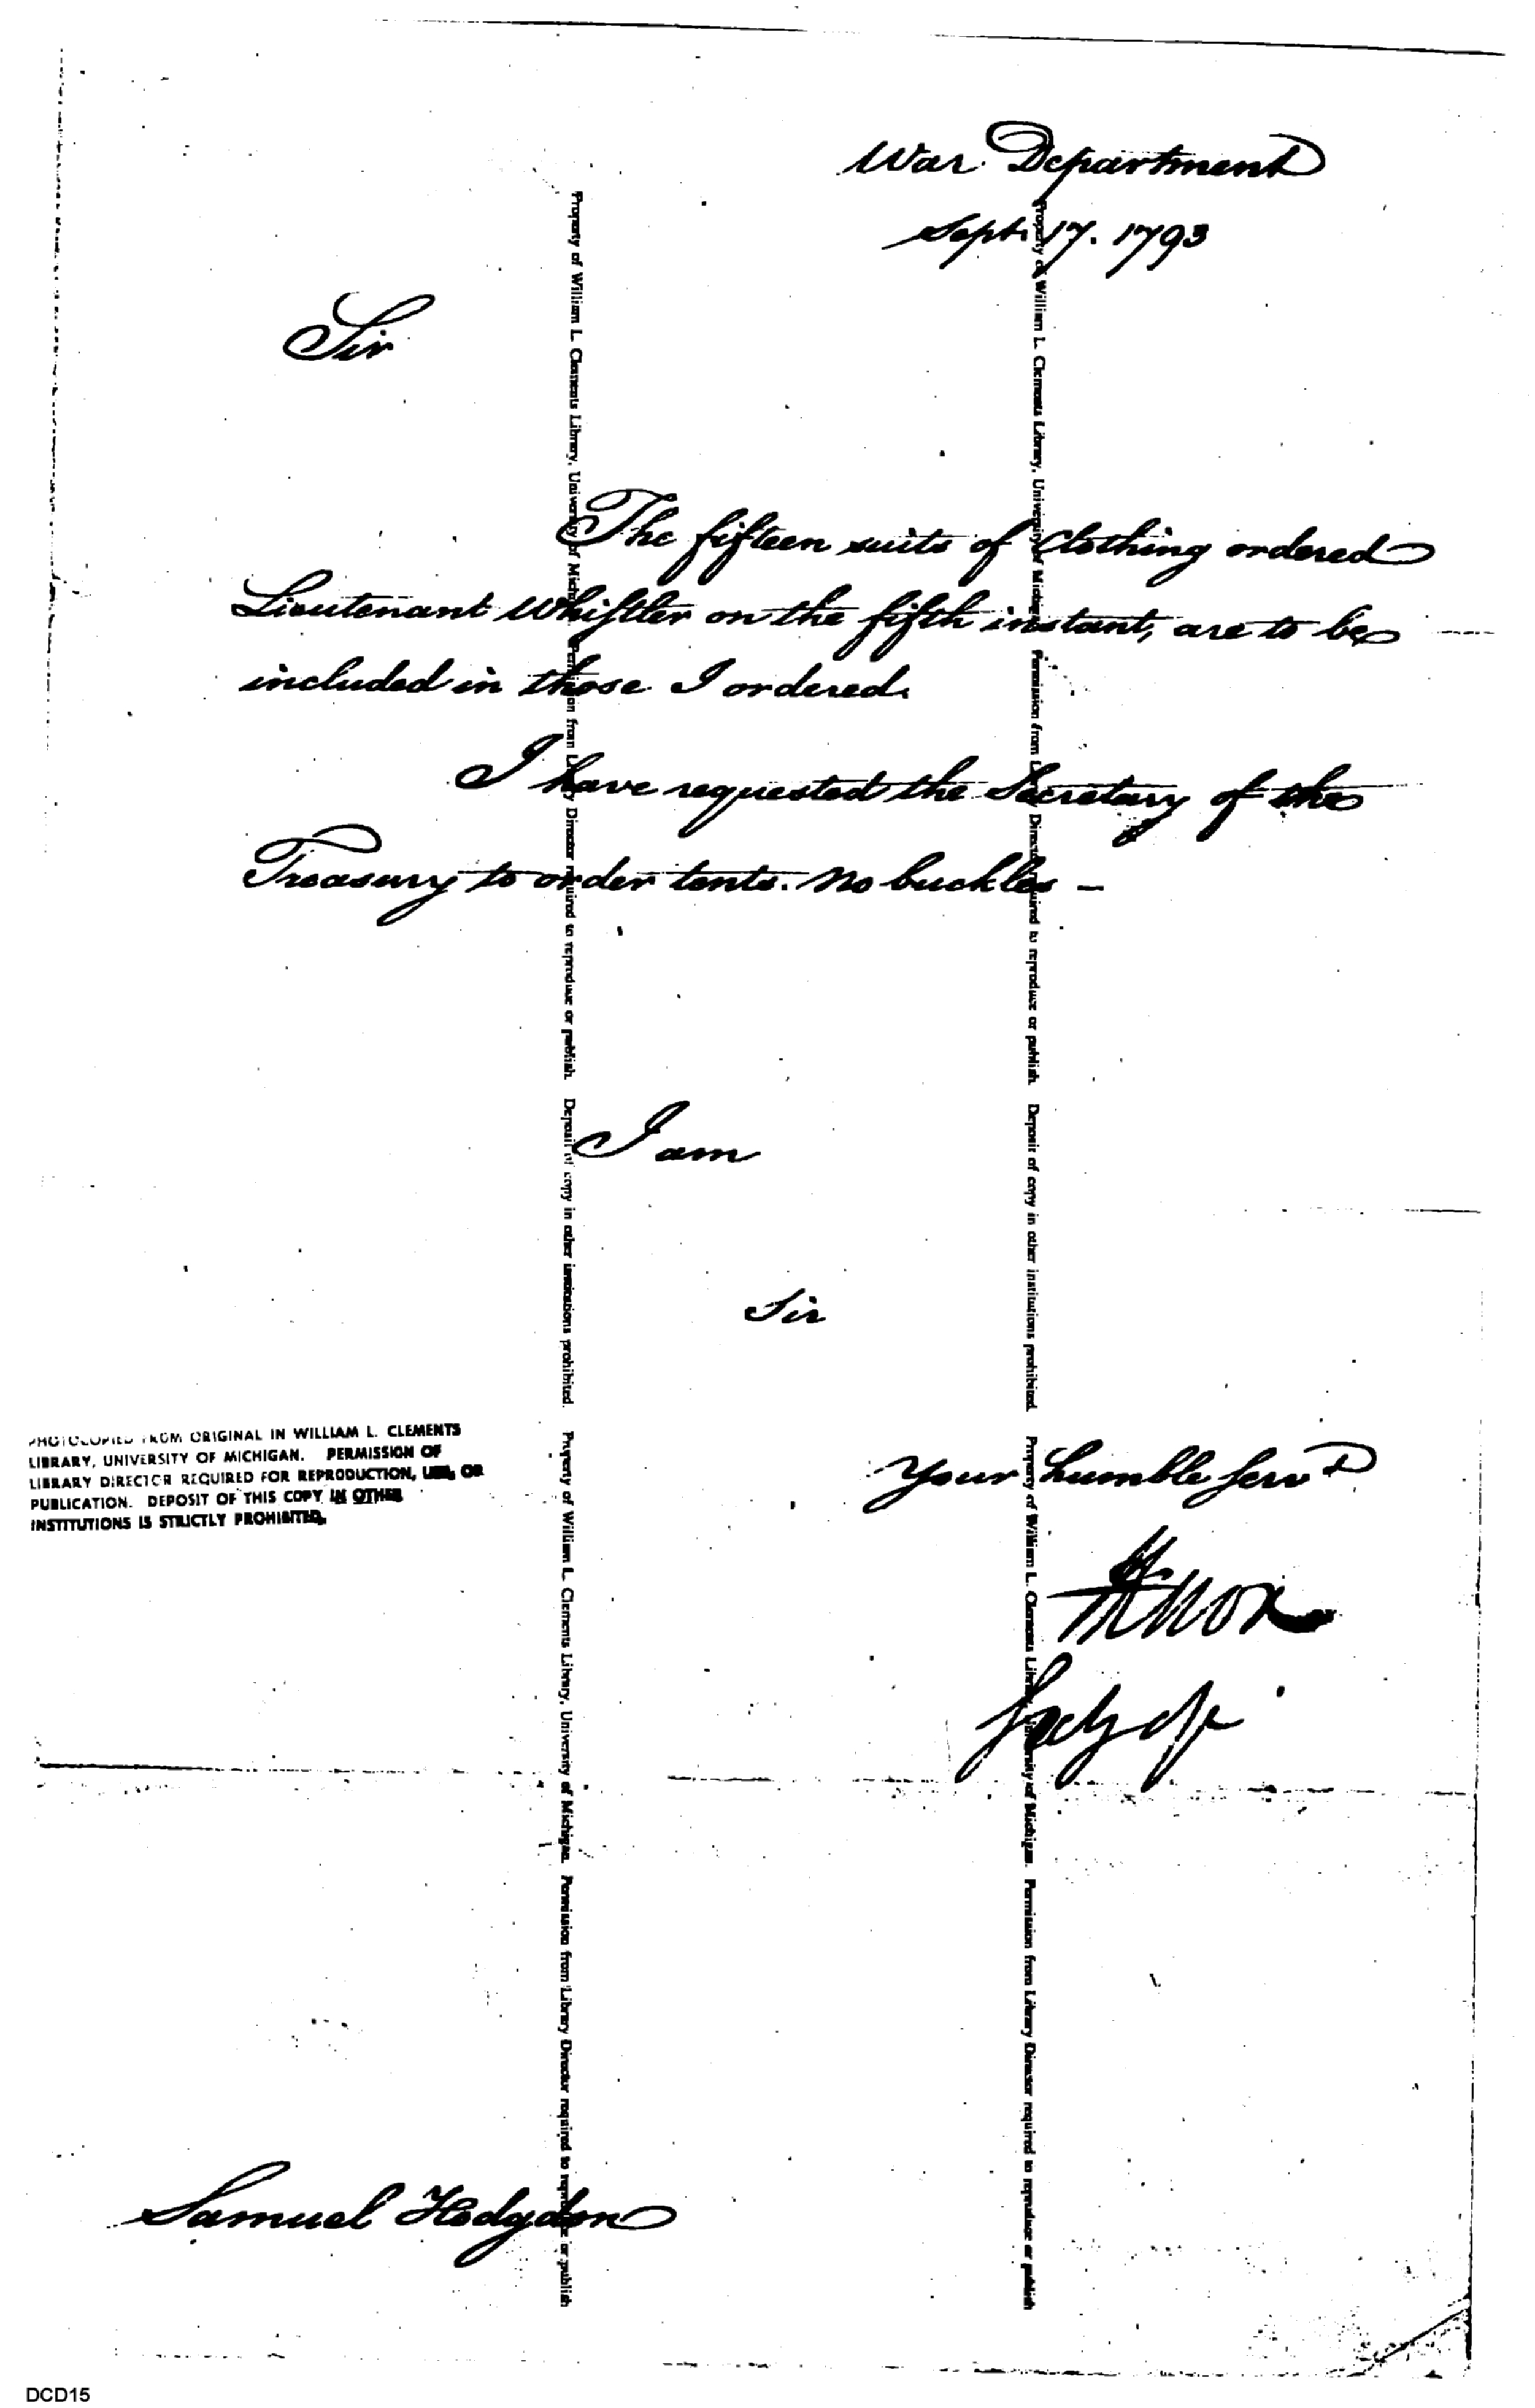 War Department
Sept. 17. 1793
Sir
The fifteen suits of Clothing ordered
Lieutenant Whistler on the fifth instant, are to be
included in those I ordered.
I have requested the Secretary of the
Treasury to order tents. No buckles –
I am
Sir
Your humble Servt
HKnox
Secy of
PHOTOCOPIED FROM ORIGINAL IN WILLIAM L. CLEMENTS
LIBRARY, UNIVERSITY OF MICHIGAN. PERMISSION OF
LIBRARY DIRECTOR REQUIRED FOR REPRODUCTION, USE, OR
PUBLICATION. DEPOSIT OF THIS COPY IN OTHER
INSTITUTIONS IS STRICTLY PROHIBITED.
Samuel Hodgdon
Property of William L. Clements Library, University of Michigan. Permission from Library Director required to reproduce or publish. Deposit of copy in other institutions prohibited. Property of William L. Clements Library, University of Michigan. Permission from Library Director required to reproduce or publish
Property of William L. Clements Library, University of Michigan. Permission from Library Director required to reproduce or publish. Deposit of copy in other institutions prohibited. Property of William L. Clements Library, University of Michigan. Permission from Library Director required to reproduce or publish
DCD15